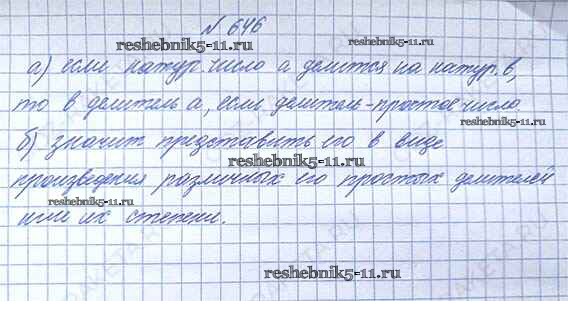 № 646
reshebnik5-11.ru
а) если натур. число а делится на натур. в,
reshebnik5-11.ru
то в делитель а, если делитель - простое число
reshebnik5-11.ru
б) значит представить его в виде
reshebnik5-11.ru
произведения различных его простых делителей
reshebnik5-11.ru
или их степени.
reshebnik5-11.ru